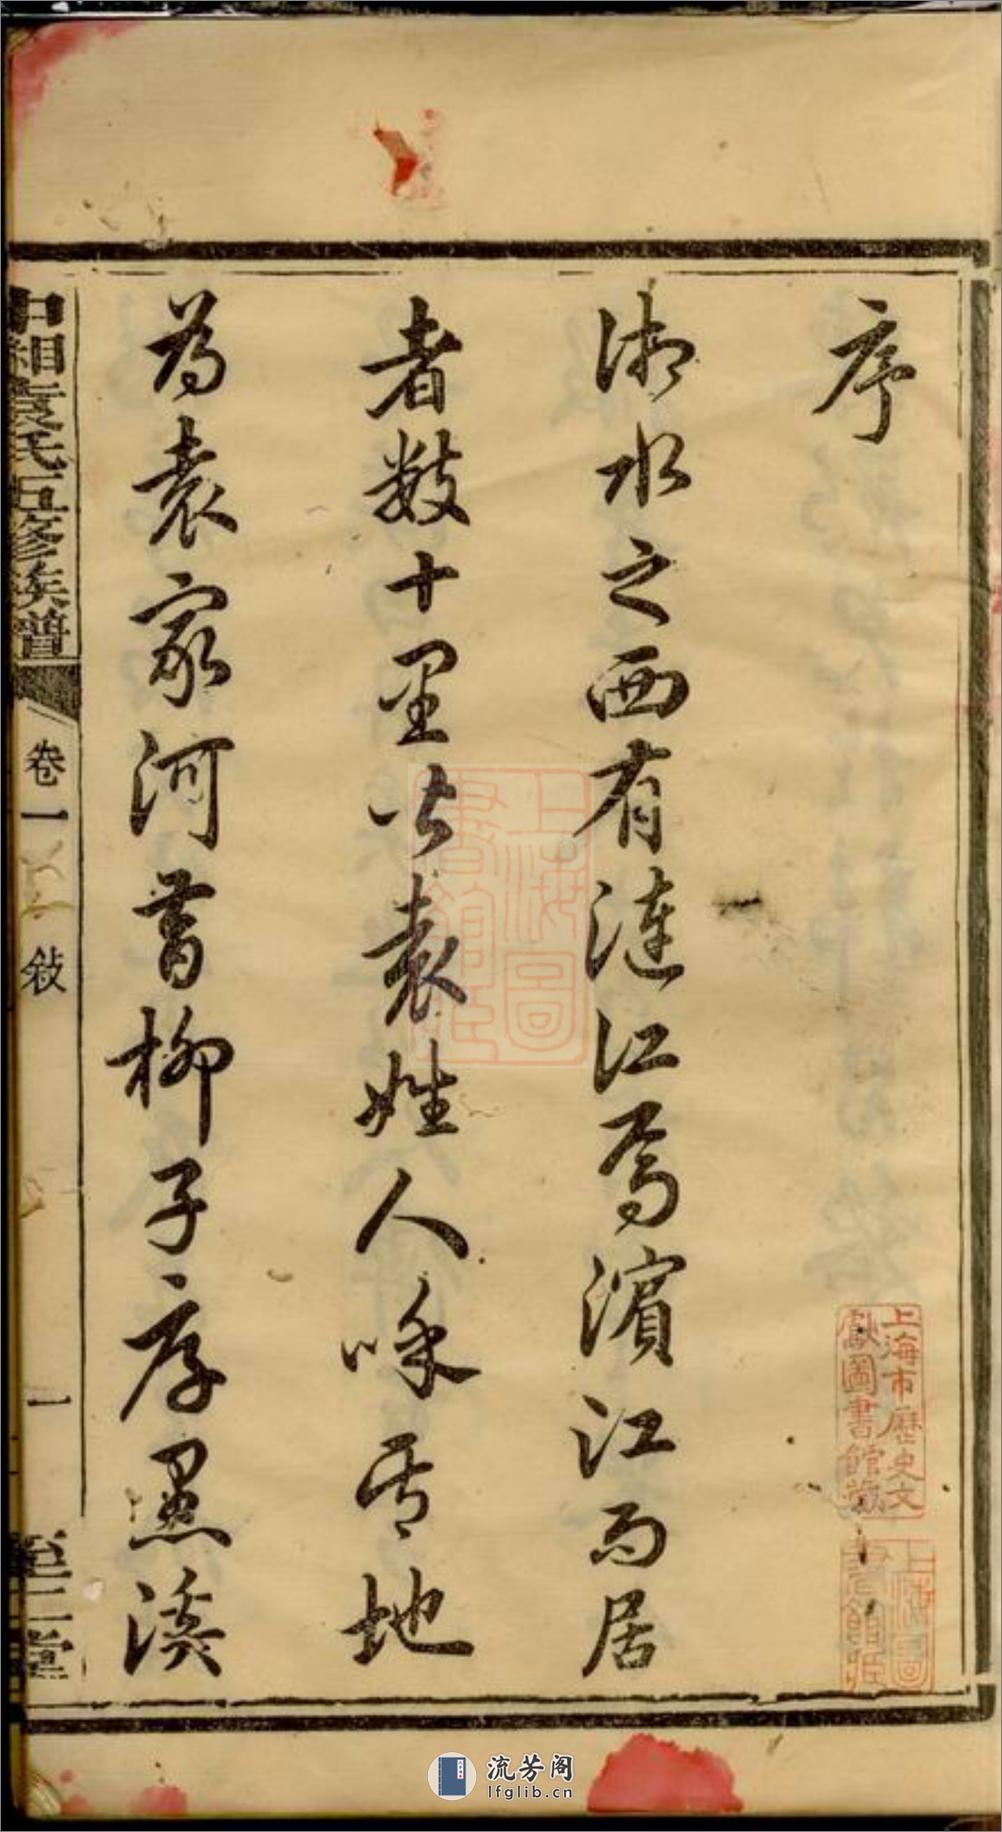 序
湘水之西有漣江焉濱江而居
者數十里皆袁姓人呼其地
為袁家河昔柳子序愚溪
中湘袁氏五修族譜
卷一
敘
一
上海市歷史文
獻圖書館藏
上海圖
書館藏
上海圖
書館藏
流芳阁
lfglib.cn